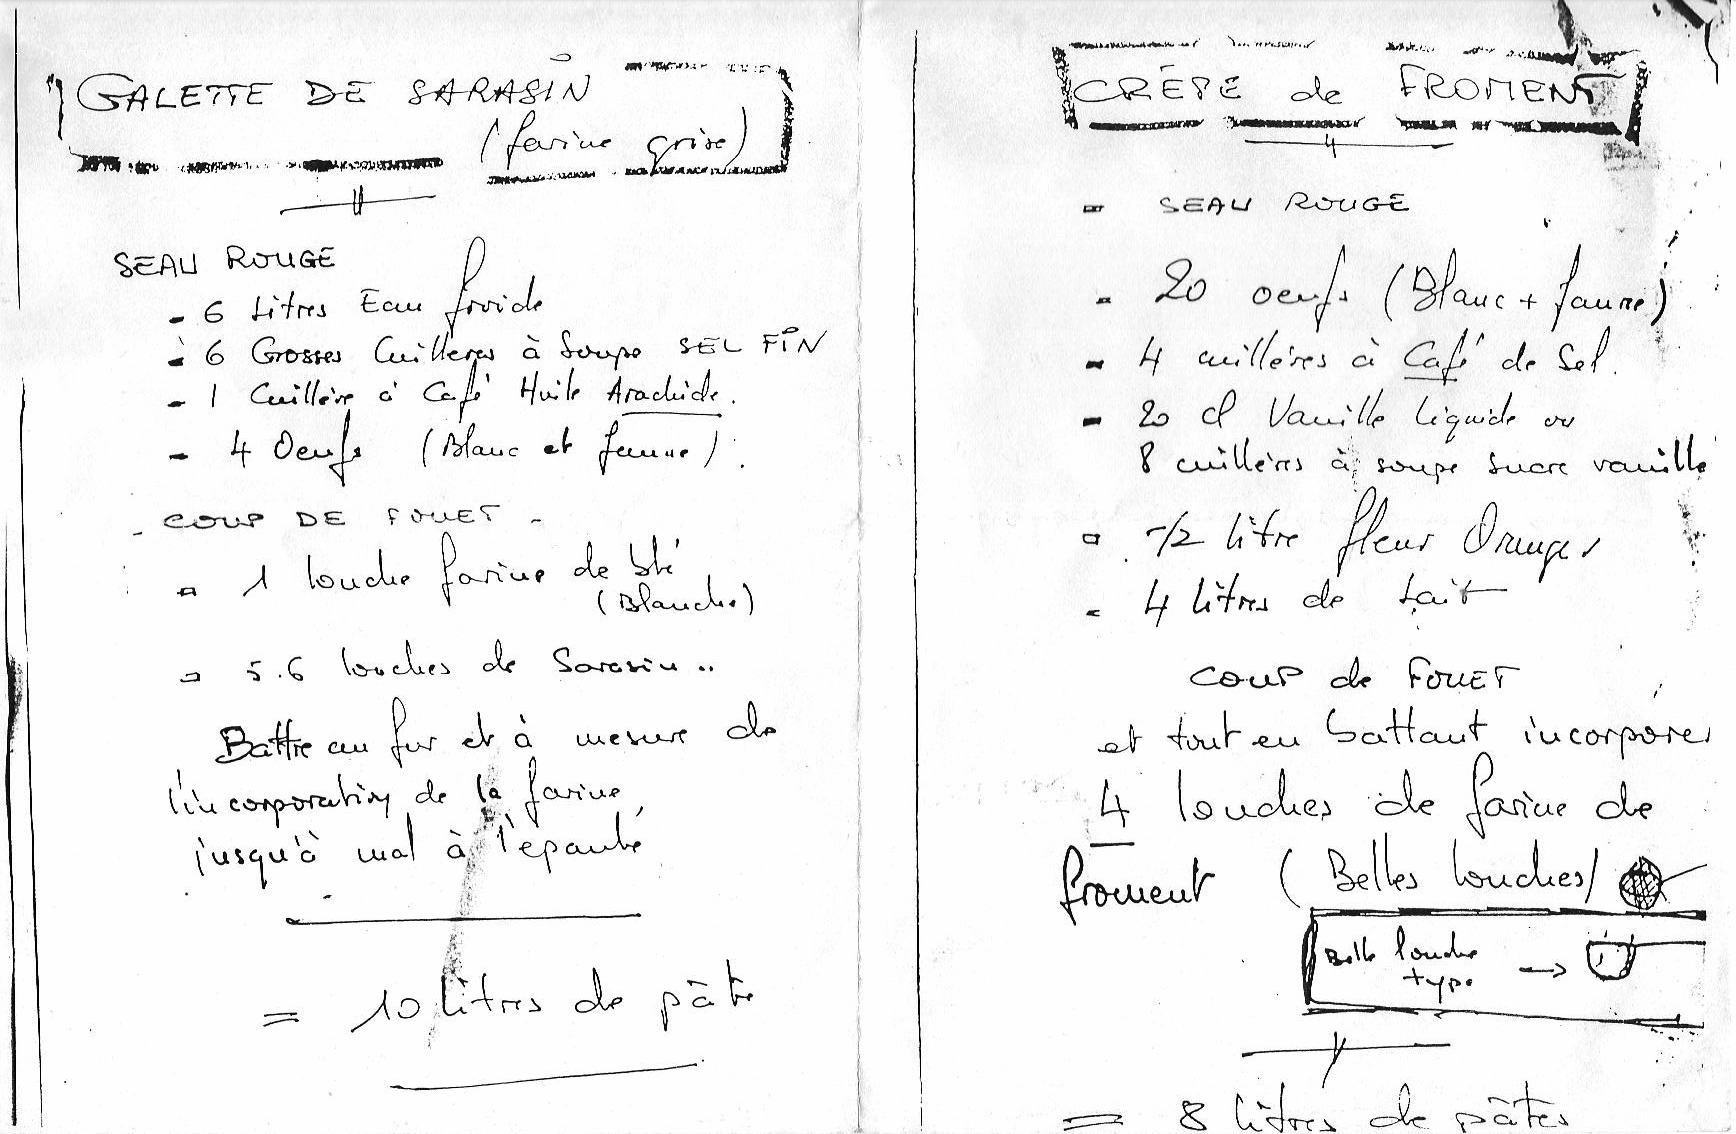 GALETTE DE SARASIN
(farine grise)
SEAU ROUGE
- 6 Litres Eau froide
- 6 Grosses Cuilleres à Soupe SEL FIN
- 1 Cuillère à Café Huile Arachide.
- 4 Oeufs (Blanc et Jaune).
- COUP DE FOUET -
- 1 louche farine de blé
(Blanche)
- 5.6 louches de Sarasin ..
Battre au fur et à mesure de
l'incorporation de la farine
jusqu'à mal à l'épaule
= 10 litres de pâte
CRÈPE de FROMENT
- SEAU ROUGE
- 20 oeufs (Blanc + Jaune)
- 4 cuillères à Café de Sel.
- 20 cl Vanille liquide ou
8 cuillères à soupe sucre vanillé
- 1/2 litre fleur Oranger
- 4 litres de lait
COUP de FOUET
et tout en battant incorporer
4 louches de farine de
froment (Belles louches)
Belle louche
type →
= 8 litres de pâtes